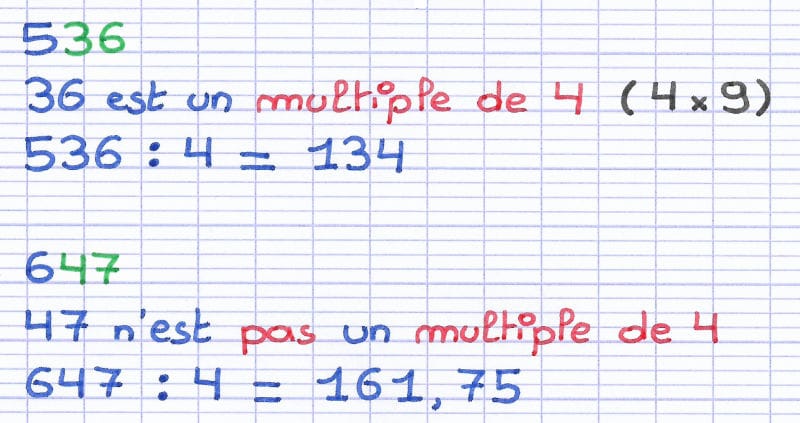 536
36 est un multiple de 4 (4×9)
536 : 4 = 134
647
47 n'est pas un multiple de 4
647 : 4 = 161,75